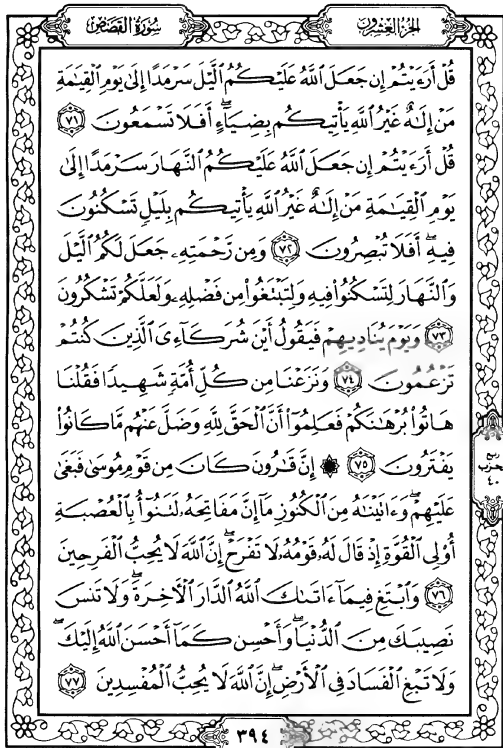 سُورَةُ القَصَصِ
الجُزْءُ العِشْرُونَ
قُلْ أَرَءَيْتُمْ إِن جَعَلَ ٱللَّهُ عَلَيْكُمُ ٱلَّيْلَ سَرْمَدًا إِلَىٰ يَوْمِ ٱلْقِيَٰمَةِ
مَنْ إِلَٰهٌ غَيْرُ ٱللَّهِ يَأْتِيكُم بِضِيَآءٍ ۖ أَفَلَا تَسْمَعُونَ ٧١
قُلْ أَرَءَيْتُمْ إِن جَعَلَ ٱللَّهُ عَلَيْكُمُ ٱلنَّهَارَ سَرْمَدًا إِلَىٰ
يَوْمِ ٱلْقِيَٰمَةِ مَنْ إِلَٰهٌ غَيْرُ ٱللَّهِ يَأْتِيكُم بِلَيْلٍ تَسْكُنُونَ
فِيهِ ۖ أَفَلَا تُبْصِرُونَ ٧٢ وَمِن رَّحْمَتِهِۦ جَعَلَ لَكُمُ ٱلَّيْلَ
وَٱلنَّهَارَ لِتَسْكُنُوا۟ فِيهِ وَلِتَبْتَغُوا۟ مِن فَضْلِهِۦ وَلَعَلَّكُمْ تَشْكُرُونَ
٧٣ وَيَوْمَ يُنَادِيهِمْ فَيَقُولُ أَيْنَ شُرَكَآءِىَ ٱلَّذِينَ كُنتُمْ
تَزْعُمُونَ ٧٤ وَنَزَعْنَا مِن كُلِّ أُمَّةٍ شَهِيدًا فَقُلْنَا
هَاتُوا۟ بُرْهَٰنَكُمْ فَعَلِمُوٓا۟ أَنَّ ٱلْحَقَّ لِلَّهِ وَضَلَّ عَنْهُم مَّا كَانُوا۟
يَفْتَرُونَ ٧٥ ۞ إِنَّ قَٰرُونَ كَانَ مِن قَوْمِ مُوسَىٰ فَبَغَىٰ
عَلَيْهِمْ ۖ وَءَاتَيْنَٰهُ مِنَ ٱلْكُنُوزِ مَآ إِنَّ مَفَاتِحَهُۥ لَتَنُوٓأُ بِٱلْعُصْبَةِ
أُو۟لِى ٱلْقُوَّةِ إِذْ قَالَ لَهُۥ قَوْمُهُۥ لَا تَفْرَحْ ۖ إِنَّ ٱللَّهَ لَا يُحِبُّ ٱلْفَرِحِينَ
٧٦ وَٱبْتَغِ فِيمَآ ءَاتَىٰكَ ٱللَّهُ ٱلدَّارَ ٱلْءَاخِرَةَ ۖ وَلَا تَنسَ
نَصِيبَكَ مِنَ ٱلدُّنْيَا ۖ وَأَحْسِن كَمَآ أَحْسَنَ ٱللَّهُ إِلَيْكَ ۖ
وَلَا تَبْغِ ٱلْفَسَادَ فِى ٱلْأَرْضِ ۖ إِنَّ ٱللَّهَ لَا يُحِبُّ ٱلْمُفْسِدِينَ ٧٧
ربع
حزب
٤٠
٣٩٤